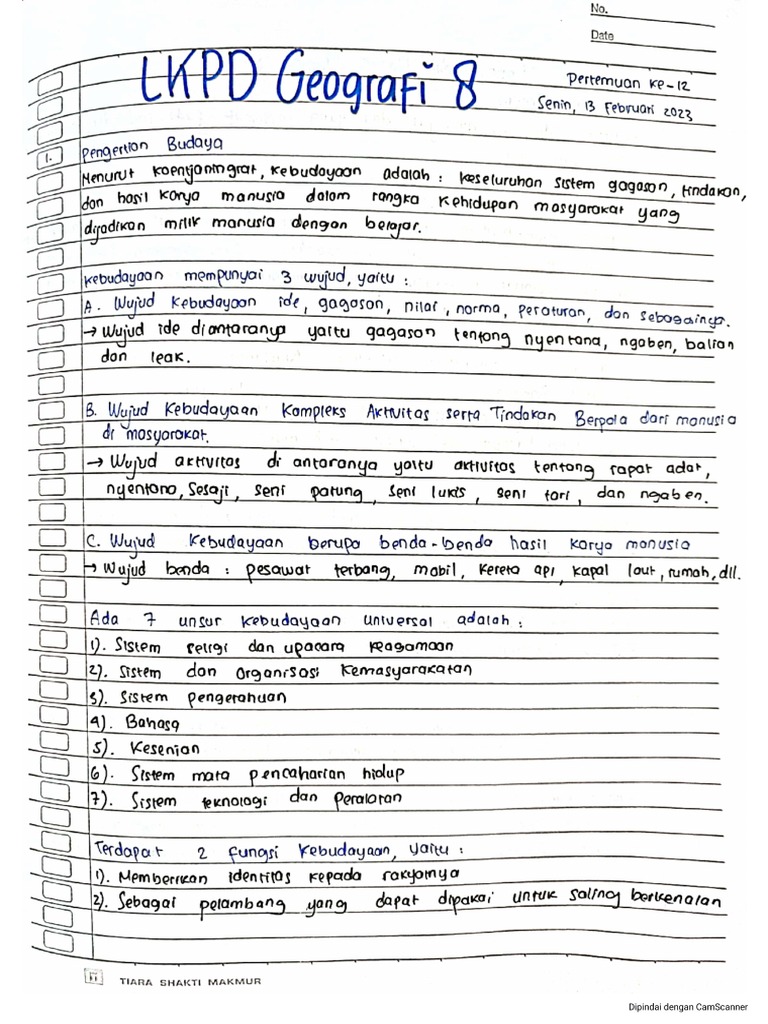 No.
Date
LKPD Geografi 8
Pertemuan ke-12
Senin, 13 Februari 2023
1. Pengertian Budaya
Menurut Koentjaningrat, kebudayaan adalah : keseluruhan sistem gagasan, tindakan,
dan hasil karya manusia dalam rangka kehidupan masyarakat yang
dijadikan milik manusia dengan belajar.
Kebudayaan mempunyai 3 wujud, yaitu :
A. Wujud Kebudayaan ide, gagasan, nilai, norma, peraturan, dan sebagainya.
→ Wujud ide diantaranya yaitu gagasan tentang nyentana, ngaben, balian
dan leak.
B. Wujud Kebudayaan Kompleks Aktivitas serta Tindakan Berpola dari manusia
di masyarakat.
→ Wujud aktivitas di antaranya yaitu aktivitas tentang rapat adat,
nyentana, Sesaji, seni patung, seni lukis, seni tari, dan ngaben.
C. Wujud Kebudayaan berupa benda-benda hasil karya manusia
→ Wujud benda : pesawat terbang, mobil, kereta api, kapal laut, rumah, dll.
Ada 7 unsur kebudayaan universal adalah :
1). Sistem religi dan upacara keagamaan
2). Sistem dan Organisasi Kemasyarakatan
3). Sistem pengetahuan
4). Bahasa
5). Kesenian
6). Sistem mata pencaharian hidup
7). Sistem teknologi dan peralatan
Terdapat 2 fungsi kebudayaan, yaitu :
1). Memberikan identitas kepada rakyatnya
2). Sebagai pelambang yang dapat dipakai untuk saling berkenalan
TIARA SHAKTI MAKMUR
Dipindai dengan CamScanner